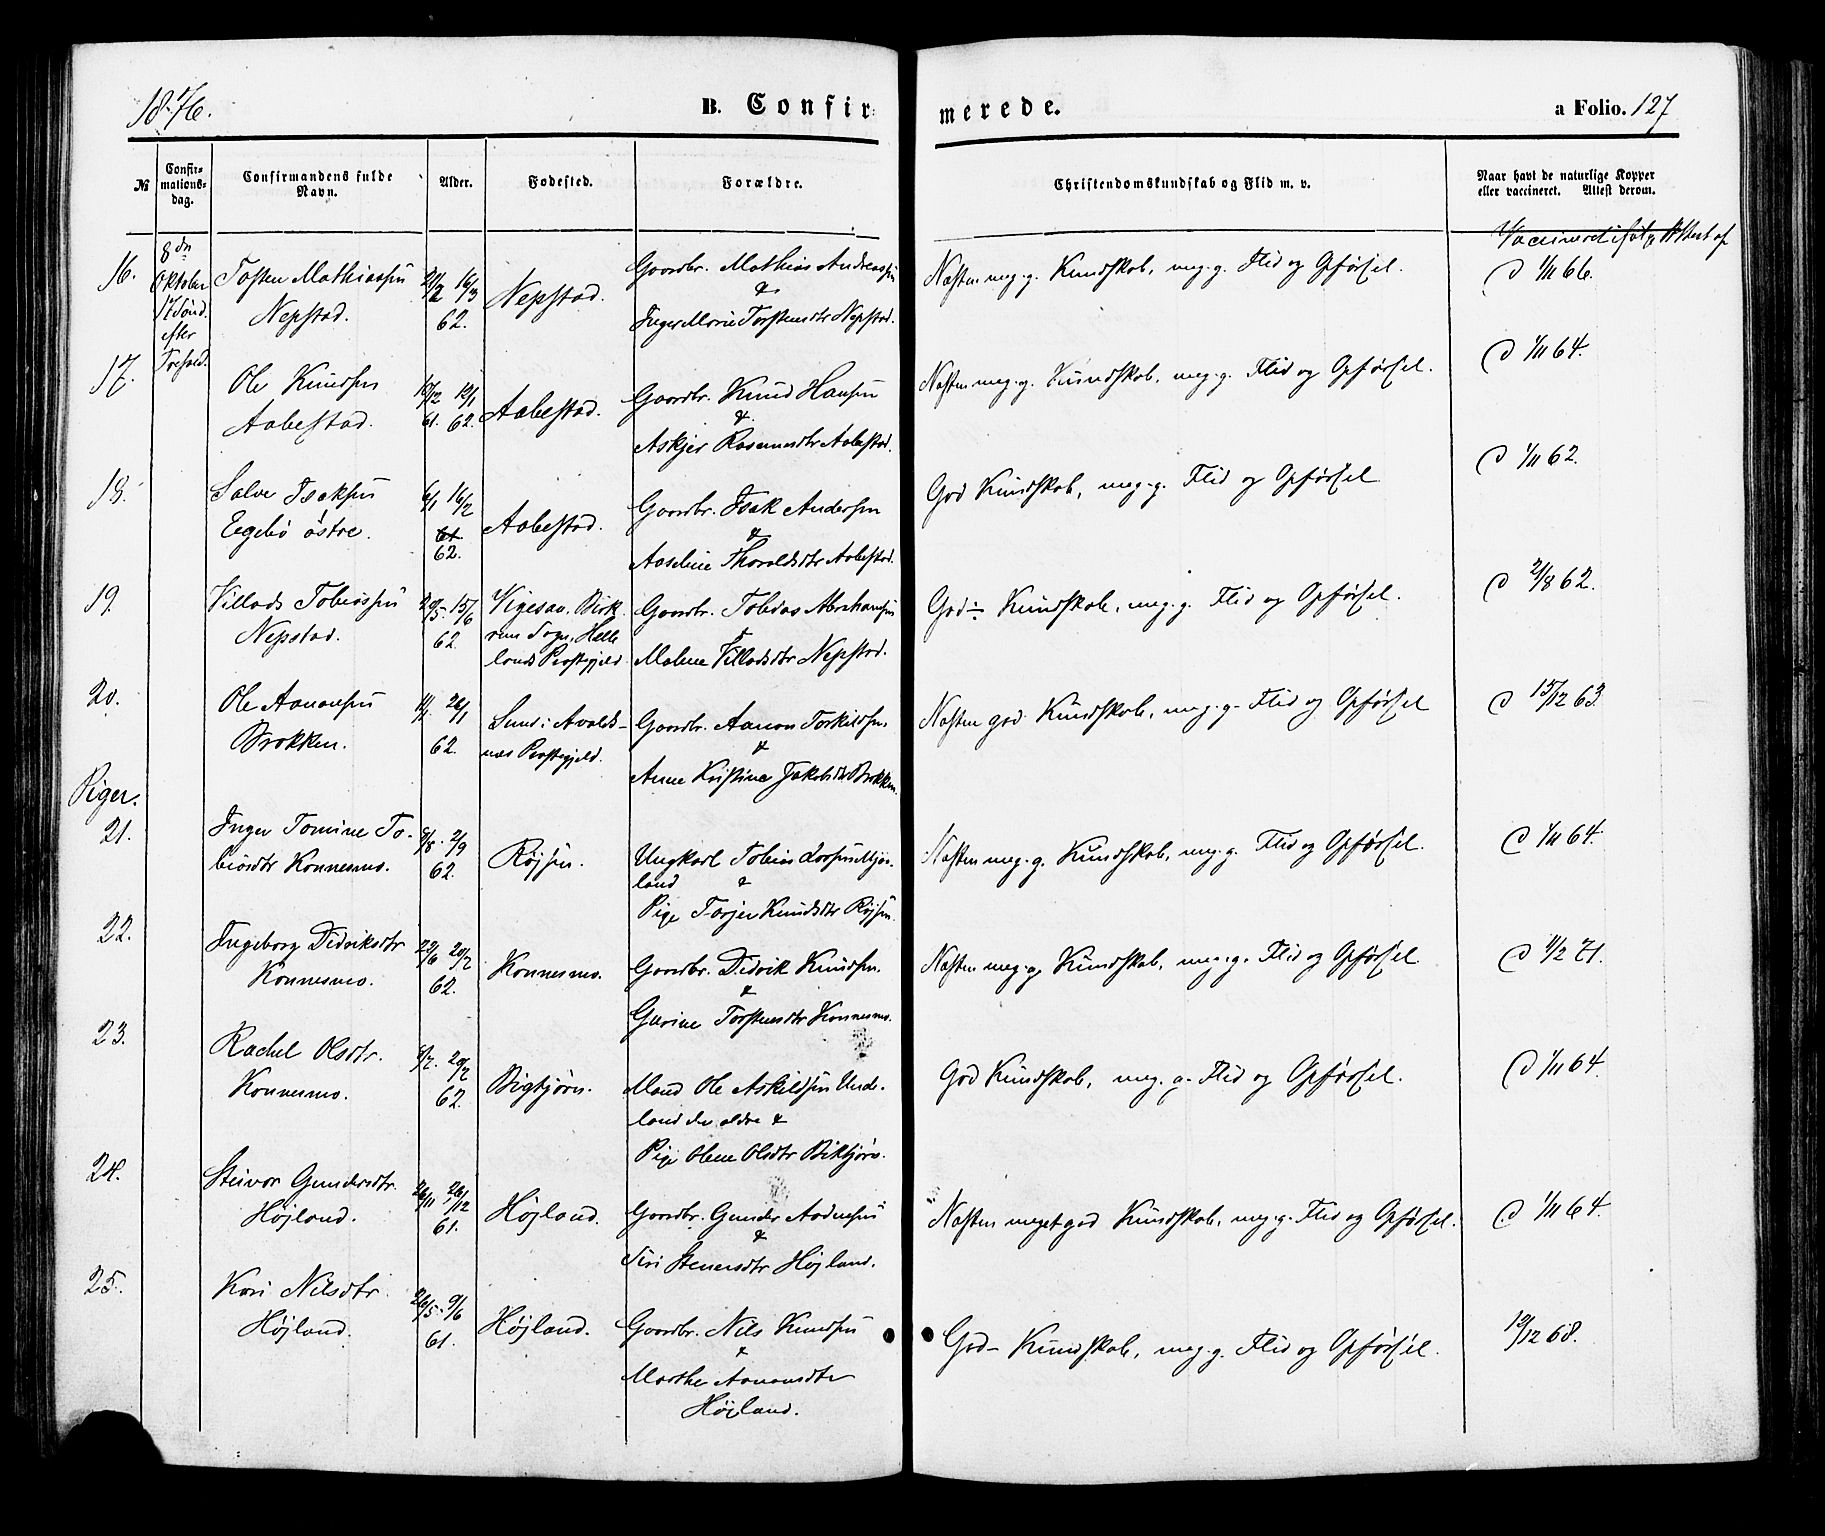 1876.
B. Confirmerede.
a Folio. 127
№
Confirmationsdag.
Confirmandens fulde Navn.
Alder.
Fødested.
Forældre.
Christendomskundskab og Flid m. v.
Naar havt de naturlige Kopper eller vaccineret. Attest derom.
Vaccineret ifølg Attest af
8de Oktober 17 Sønd. efter Trefold.
16.
Tosten Mathiassen
Nepstad.
21/2 16/3
62.
Nepstad.
Gaardbr. Mathias Andreassen
&
Inger Marie Torstensdtr Nepstad.
Næsten meg. g. Kundskab, meg. g. Flid og Opførsel.
d 1/11 66.
17.
Ole Knudsen
Aabestad.
12/1
61. 62.
Aabestad.
Gaardbr. Knud Hansen
&
Askjer Rasmusdtr Aabestad.
Næsten meg. g. Kundskab, meg. g. Flid og Opførsel.
d 1/11 64.
18.
Salve Isaksen
Eegebø østre.
6/1 16/2
61.
62.
Aabestad.
Gaardbr. Isak Andersen
&
Aaseline Thoraldsdtr Aabestad.
God Kundskab, meg. g. Flid og Opførsel
d 1/11 62.
19.
Villads Tobiassen
Nepstad.
29/5 - 15/6
62.
Vigesaa, Birkrem Sogn, Hellelands Præstegjeld.
Gaardbr. Tobias Abrahamsen
&
Malene Villadsdtr Nepstad.
God ÷ Kundskab, meg. g. Flid og Opførsel.
d 21/8 62.
20.
Ole Aanonsen
Brokken.
11/1. 26/1
62.
Sund i Avaldsnes Præstegjeld.
Gaardbr. Aanon Torkildsen
&
Anne Kristine Jakobsdtr Brokken.
Næsten god Kundskab, meg. g. Flid og Opførsel
d 15/12 63.
Piger.
21.
Inger Tomine To-
biasdtr Konnesmo.
8/8. 2/9
62.
Røjsen.
Ungkarl Tobias Larsen Mjøs-
land &
Pige Torjer Knudsdtr Røjsen.
Næsten meg. g. Kundskab, meg. g. Flid og Opførsel.
d 1/11 64.
22.
Ingeborg Didriksdtr
Konnesmo.
22/6 20/7
62.
Konnesmo.
Gaardbr. Didrik Knudsen.
&
Gurine Torstensdtr Konnesmo.
Næsten meg. g. Kundskab, meg. g. Flid og Opførsel
d 4/2 71.
23.
Rachel Olsdtr.
Konnesmo.
6/7. 20/7
62.
Bigtjørn.
Mand Ole Askildsen Und-
land den ældre &
Pige Olene Olsdtr Biktjørn.
God Kundskab, meg. g. Flid og Opførsel.
d 1/11 64.
24.
Steinor Gundersdtr.
Højland.
26/11 26/12
61.
Højland.
Gaardbr. Gunder Aadnesen
&
Siri Steinersdtr Højland.
Næsten meget god Kundskab, meg. g. Flid og Opførsel.
d 1/11 64.
25.
Kari Nilsdtr
Højland.
26/5 - 9/6
61.
Højland.
Gaardbr. Nils Knudsen
&
Marthe Aanonsdtr
Højland.
God - Kundskab, meg. g. Flid og Opførsel.
12/12 68.